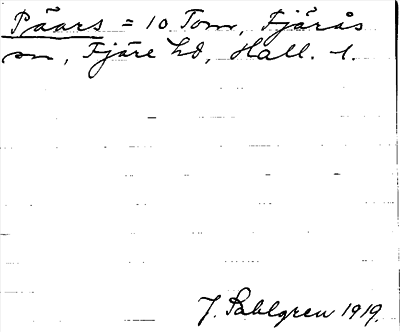 Päars = 10 Tom, Fjärås
sn, Fjäre hd, Hall. l.
J. Sahlgren 1919.